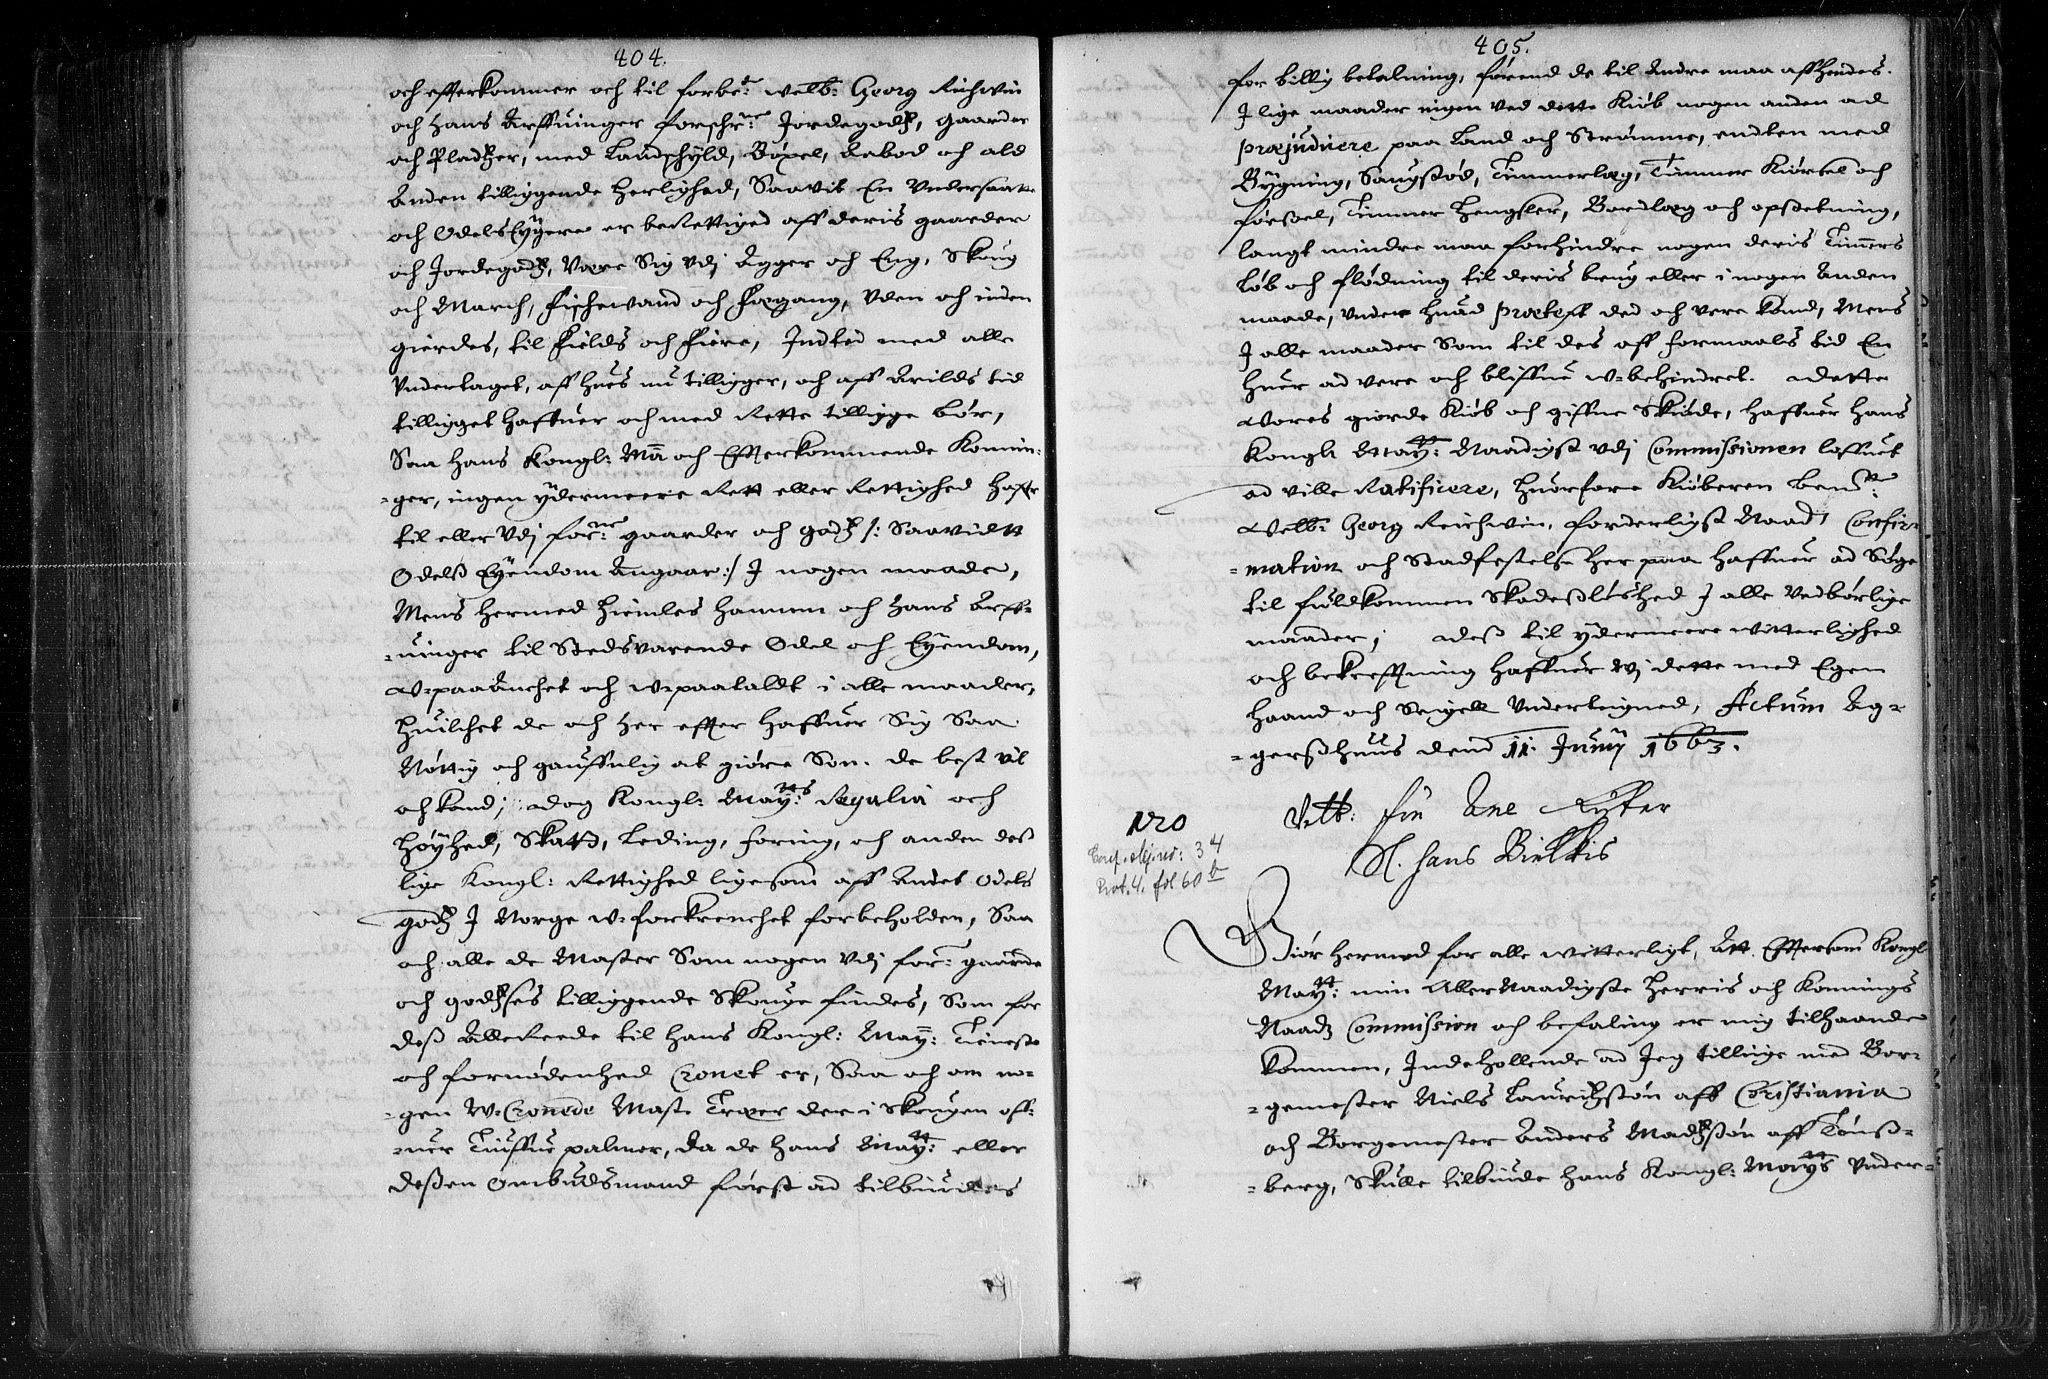 404.
och efterkommer och til forbe:te welb: Georg Richwin
och hans Arffuinger forschr:ne Jordegodz, gaarder
och Pladzer, med Landschyld, Böxel, Aabod och ald
anden tilliggende herlighed, Saavit En Vndersaatte
och Odels Eÿgere er berettiged aff deris gaarder
och Jordegodz, Være Sig vdj Agger och Eng, Skoug
och March, fischevand och fægang, Vden och inden
gierdes, til fields och fiere, Indted med alle
Vndertaget, aff hues nu tilligger, och aff Arilds tid
tilligget haffuer och med Rette tilligge bör,
Saa hans Kongl: Ma: och Efterkommende Konnin-
-ger, ingen ÿdermeere Rett eller Rettighed hafr
til eller vdj for:ne gaarder och godz /: Saavidtt
Odelss Eÿendom Angaar :/ J nogen maade,
Mens hermed hiemles hannem och hans Arff-
-uinger til Stedsvarende Odel och Eÿendom,
W-paaanchet och w-paataldt i alle maader,
huilchet de och her effter haffuer Sig Saa
Nöttig och gauffnlig at giöre Som de best vil
och kand; dog Kongl: Maÿ:tts Regalia och
Höÿhed, Skatt, Leding, foring, och anden dess
lige Kongl: Rettighed ligesom aff Andet Odels
godz J Norge w-forkrenchet forbeholden, Saa
och alle de Master Som nogen vdj for: gaarde
och godzses tilliggende Skouge findes, Som for
dess Allerede til hans Kongl: Maÿ: Tieniste
och fornödenhed Cronet er, Saa och om no-
-gen W-Cronede Mast Træer der i Skougen off-
-uer Tiuffue palmer, da de hans Maÿ:tt eller
dessen Ombudsmand först ad tilbiudes
405.
for billig betalning, förend de til Andre maa affhendes.
J lige maader ingen ved dette Kiöb nogen anden ad
præjudicere paa Land och Strömme, endten med
Bÿgning, Saugstöd, Timmerlæg, Timmer Kiörsel och
förssel, Timmer hengsler, Bordlæg och opsetning,
langt mindre maa forhindre nogen deris Timers
löb och flödning til deris brug eller i nogen Anden
maade, vnder huad prætext det och vere kand, Mens
J alle maader Som til des aff formaals tid En
huer ad vere och bliffue w-behindret. dette
Vores giorde Kiöb och giffne Sköde, haffuer hans
Kongl Maÿ:tt Naadigst vdj Commissionen loffuet
ad ville Ratificere, huorfore Kiöberen bem:te
Welb: Georg Reichwin, forderligst Naad Confir-
-mation och Stadfestelse her paa haffuer ad Söge
til fuldkommen Skadesslöshed J alle Vedbörlige
maader; dess til ÿdermeere witterlighed
och bekrefftning haffuer wj dette med Egen
haand och Seigell Vnderteigned, Actum Ag-
-gersshuus dend 11. Junij 1663.
No
Conf. nr: 34
Prot. 4. fol 60 b
Velb: fru Ane Ryter
Sl. Hans Bielkis
Giör hermed for alle witterligt, Att Eftersom Kongl
Maÿ:tt min AllerNaadigste herris och Konnings
Naadz Commission och befaling er mig tilhaande
kommen, Indehollende ad Jeg tillige med Bor-
-gemester Niels Lauridzsön aff Cristiania
och Borgemester Anders Madzssön aff Tönss-
-berg, Skulle tilbiude hans Kongl: Maÿtts vnder-